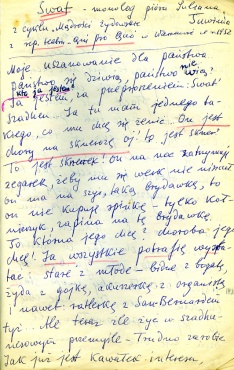 Swat - monolog pióra Juliana Tuwima
z cyklu "Mądrości żydowskie"
z rep. teatru "Qui pro Quo" w Warszawie
Moje uszanowanie dla państwa
państwo się dziwią, państwo nie wią?
Ja jestem za przeproszeniem "Swat"
szadhen. Ja tu mam jednego ta-
kiego, co mu chcę się żenić. On jest
chory na skneresę oj! to jest skner!
To jest sknerek! on na noc zatrzymuje
zegarek, żeby mu się werk nie niszczył
on ma na szyje, taką brydawkę, to
on nie kupuje spinkę - tylko koł-
nierzyk, zapina na tę brydawkę.
To która jego chce z chorobą jego
chce! Ja wszystkie potrafię wyswa-
tać. Stare z młode - bidne z bogate,
żyda z gojkę, z organistą
i nawet ratlerkę z San-Bernardem
też. Ale teraz źle żyć w szadhe-
nesowym przemyśle - Trudno zarobić.
Jak już jest kawałek interesu,